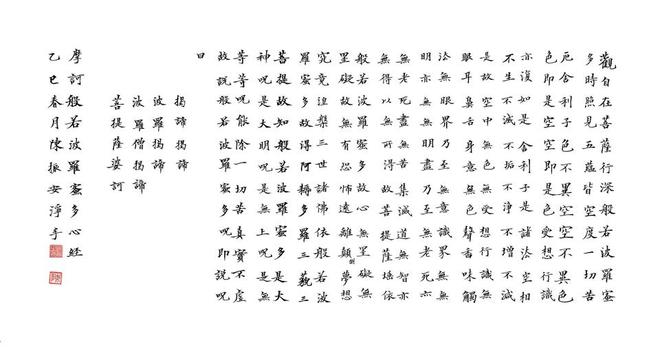 觀自在菩薩行深般若波羅蜜
多時照見五蘊皆空度一切苦
厄舍利子色不異空空不異色
色即是空空即是色受想行識
亦復如是舍利子是諸法空相
不生不滅不垢不淨不增不減
是故空中無色無受想行識無
眼耳鼻舌身意無色聲香味觸
法無眼界乃至無意識界無無
明亦無無明盡乃至無老死亦
無老死盡無苦集滅道無智亦
無得以無所得故菩提薩埵依
般若波羅蜜多故心無罣礙無
罣礙故無有恐怖遠離顛倒夢想
究竟涅槃三世諸佛依般若波
羅蜜多故得阿耨多羅三藐三
菩提故知般若波羅蜜多是大
神呪是大明呪是無上呪是無
等等呪能除一切苦真實不虛
故說般若波羅蜜多呪即說呪
曰
揭諦揭諦
波羅揭諦
波羅僧揭諦
菩提薩婆訶
摩訶般若波羅蜜多心經
乙巳春月陳振安淨手